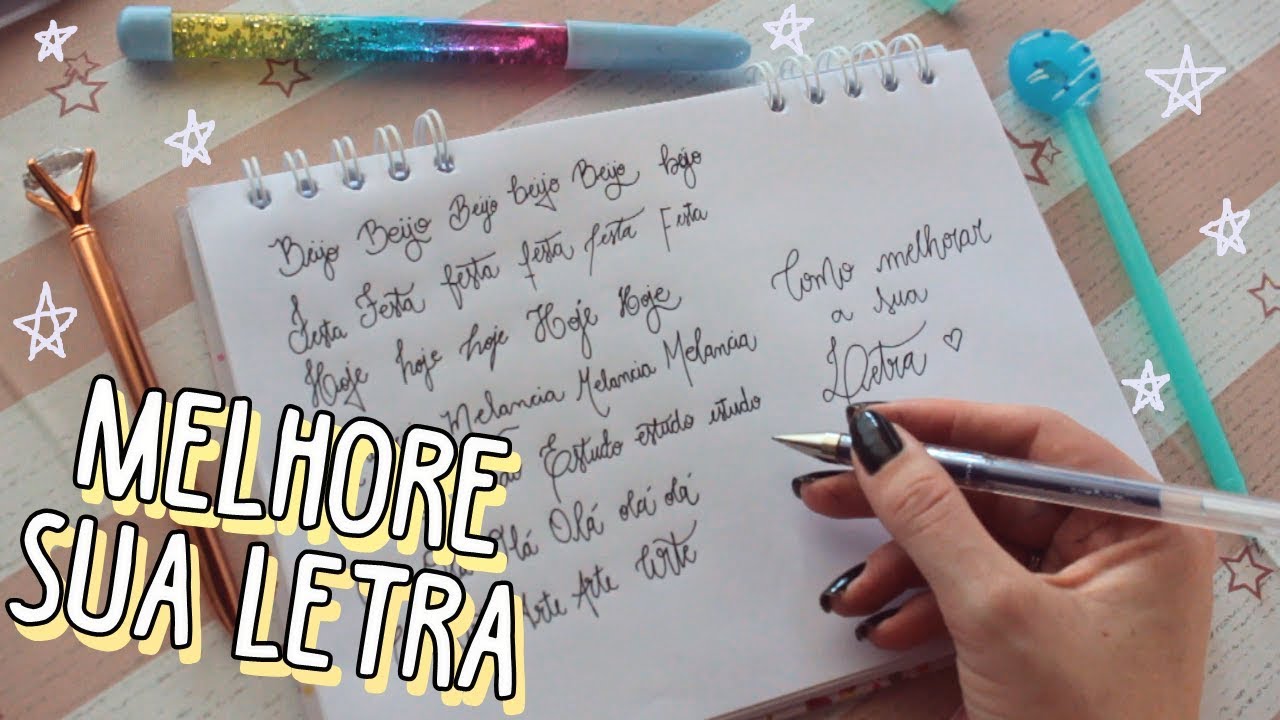 Beijo Beijo Beijo beijo Beijo beijo
Festa Festa festa festa festa Festa
Hoje hoje hoje Hoje Hoje
Melancia Melancia Melancia
Estudo estudo estudo
Olá Olá olá olá
Arte Arte Arte
Como melhorar
a sua
Letra
MELHORE
SUA LETRA